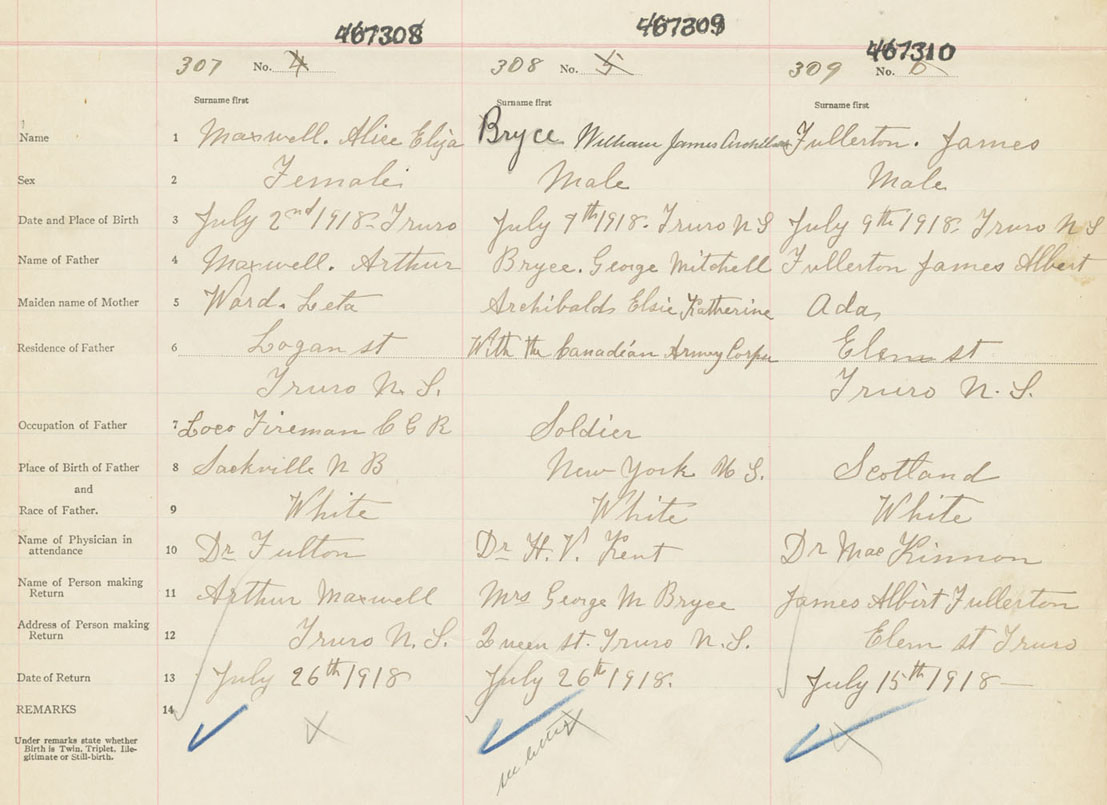 467308 467309 467310
307 No. 4 308 No. 5 309 No. 6
Surname first Surname first Surname first
Name 1 Maxwell. Alice Eliza Bryce William James Fullerton. James
Sex 2 Female Male Male
Date and Place of Birth 3 July 2nd 1918- Truro July 7th 1918. Truro N S July 9th 1918. Truro N S
Name of Father 4 Maxwell. Arthur Bryce. George Mitchell Fullerton James Albert
Maiden name of Mother 5 Ward. Leta Archibalds Elsie Katherine Ada,
Residence of Father 6 Logan st With the Canadian Army Corps Elem st
Truro N. S. Truro N. S.
Occupation of Father 7 Loco Fireman C G R Soldier
Place of Birth of Father 8 Sackville N B New York U S. Scotland
and
Race of Father. 9 White White White
Name of Physician in
attendance 10 Dr Fulton Dr H. V. Kent Dr MacKinnon
Name of Person making
Return 11 Arthur Maxwell Mrs George M Bryce James Albert Fullerton
Address of Person making
Return 12 Truro N. S. Queen st. Truro N. S. Elem st Truro
Date of Return 13 July 26th 1918 July 26th 1918. July 15th 1918
REMARKS 14
Under remarks state whether
Birth is Twin, Triplet, Ille-
gitimate or Still-birth.
see letter